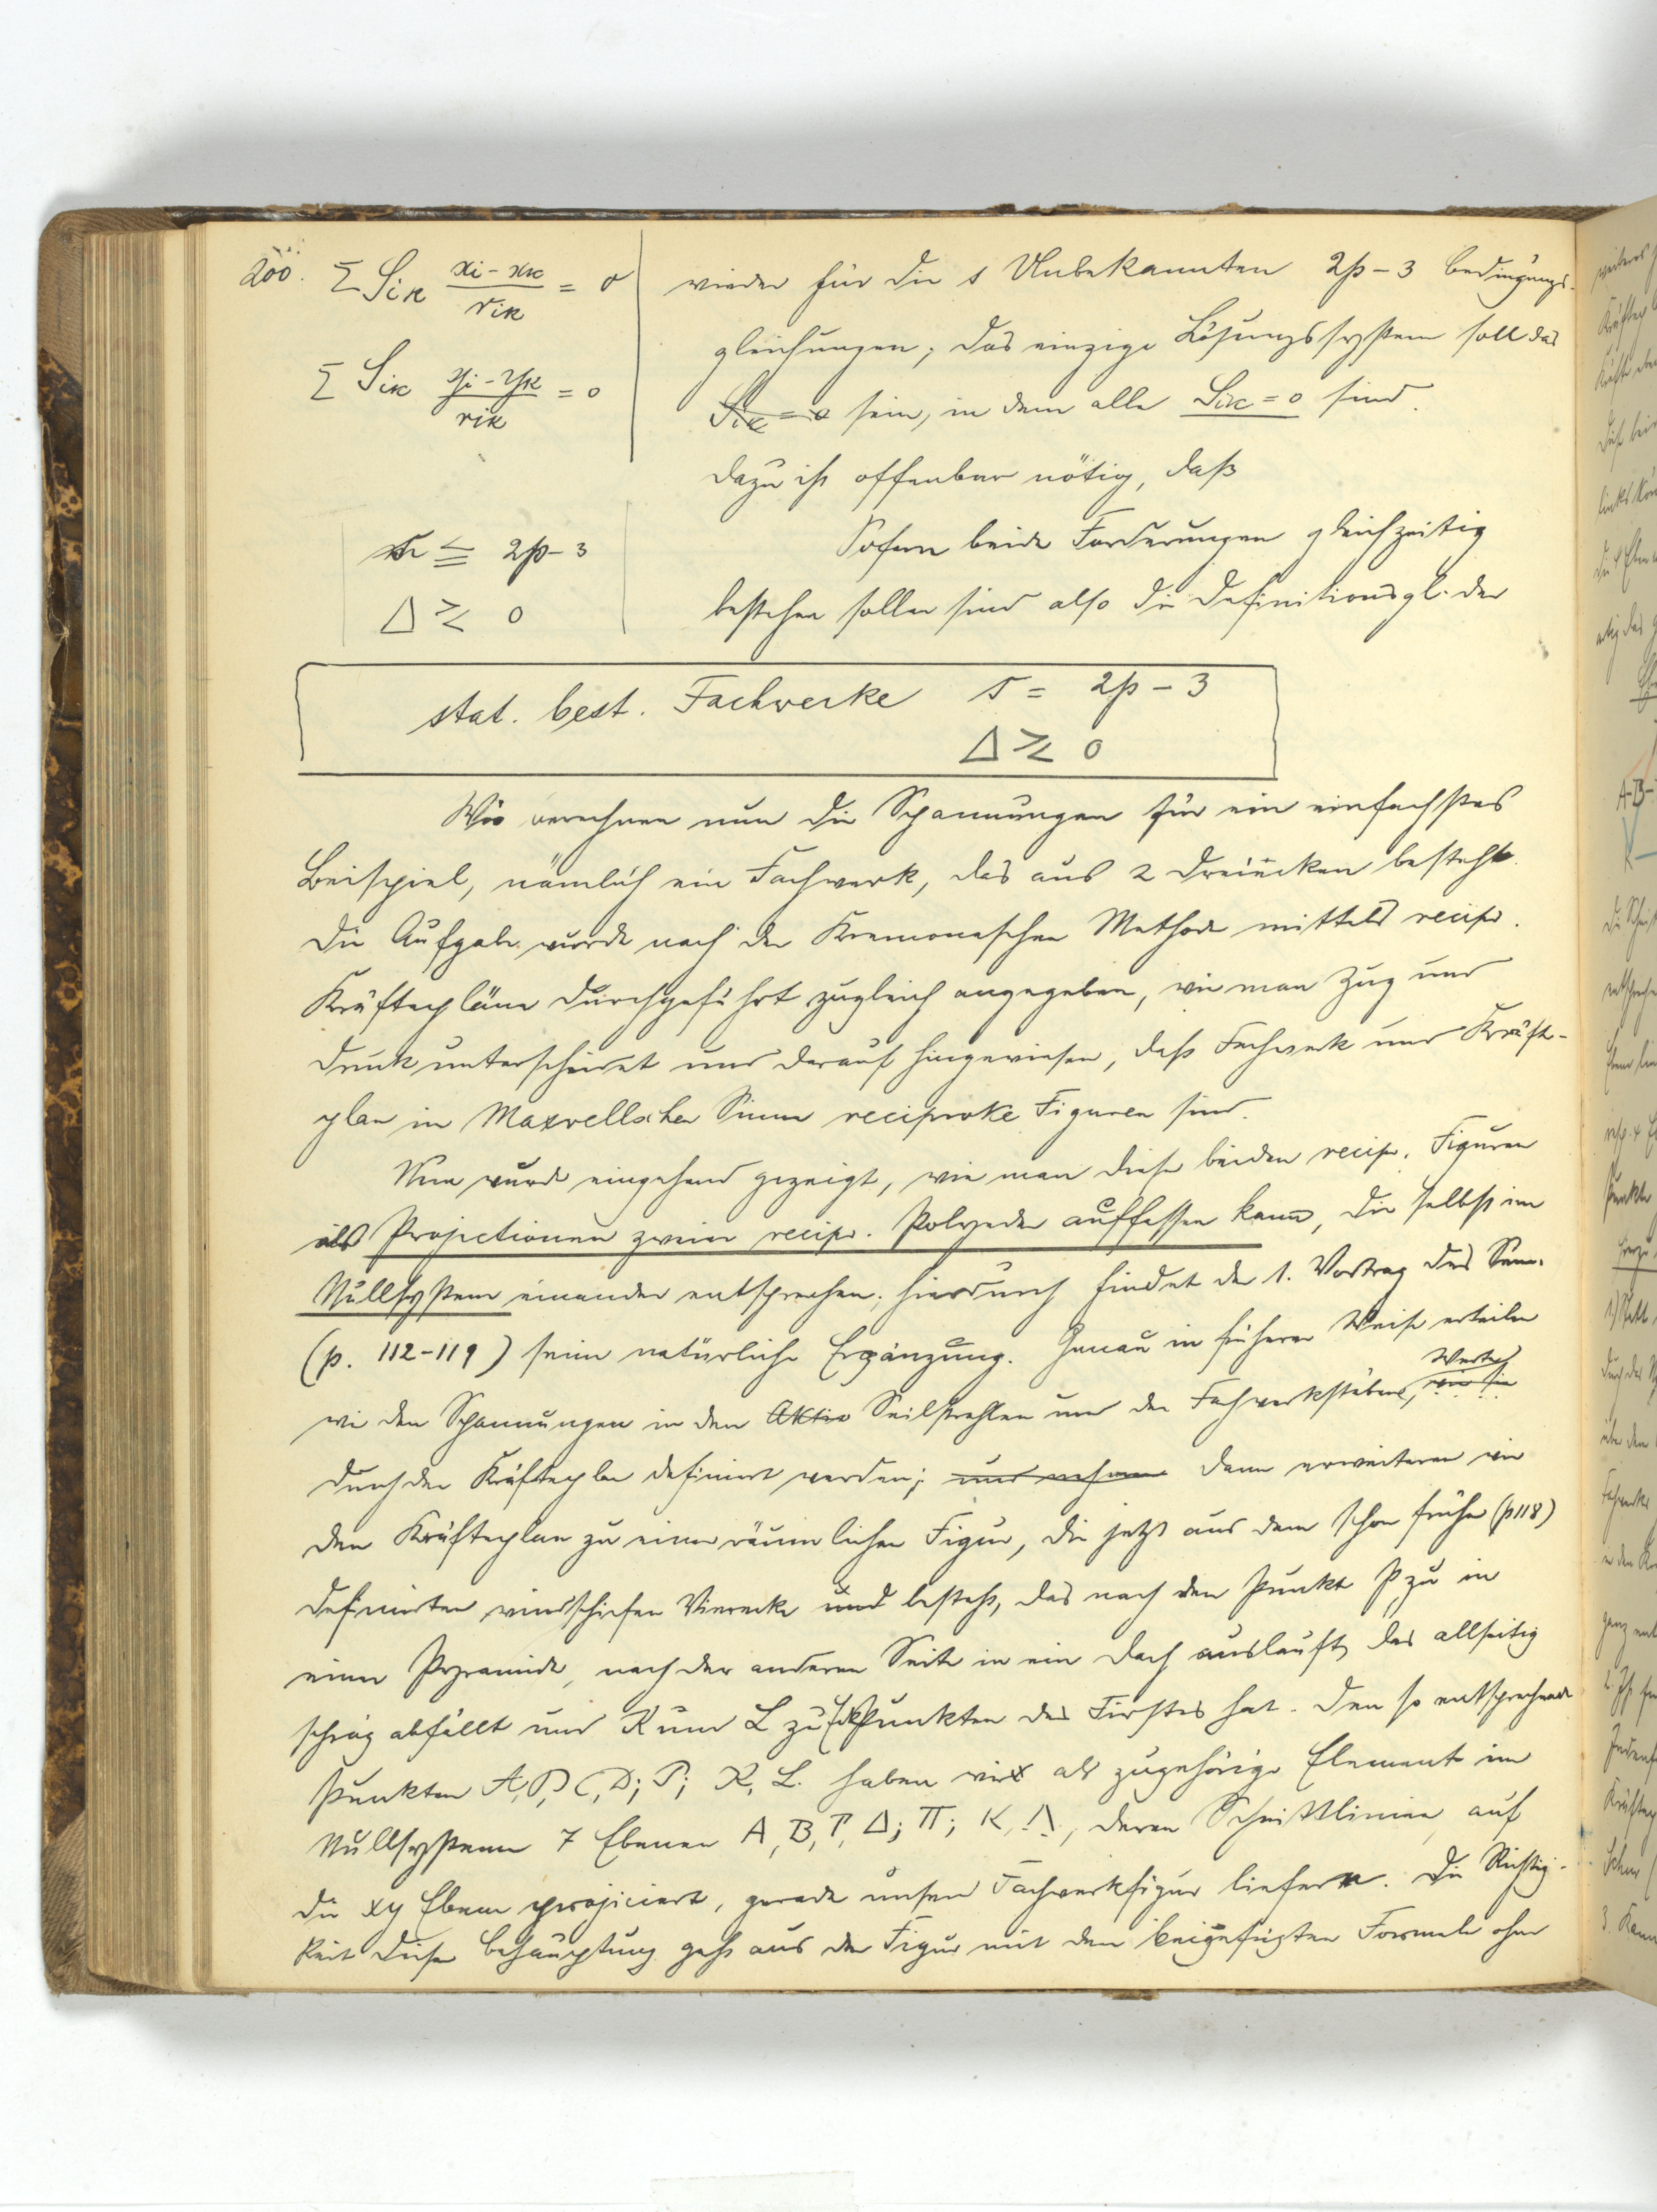 200. Σ Sik (xi - xk)/rik = 0
Σ Sik (yi - yk)/rik = 0
wieder für die s Unbekannten 2p-3 Bedingungs-
gleichungen; das einzige Lösungssystem soll das
Sik = 0 sein, in dem alle Sik = 0 sind.
Dazu ist offenbar nötig, daß
s ≦ 2p-3
Δ ≷ 0
Sofern beide Forderungen gleichzeitig
bestehen sollen sind also die Definitionsgl. der
stat. best. Fachwerke s = 2p - 3
Δ ≷ 0
Wir berechnen nun die Spannungen für ein einfachstes
Beispiel, nämlich ein Fachwerk, das aus 2 Dreiecken besteht.
Die Aufgabe wurde nach der Kremonaschen Methode mittels recipr.
Kräftepläne durchgeführt zugleich angegeben, wie man Zug und
Druck unterscheidet und darauf hingewiesen, daß Fachwerk und Kräfte-
plan im Maxwellschen Sinne reciproke Figuren sind.
Nun wurde eingehend gezeigt, wie man diese beiden recipr. Figuren
als Projectionen zweier recipr. Polyeder auffassen kann, die selbst im
Nullsystem einander entsprechen; hierdurch findet der 1. Vortrag des Sem.
(p. 112-119) seine natürliche Ergänzung. Genau in früherer Weise erteilen
wir den Spannungen in den Aktio Seilstrahlen und den Fachwerkstäben, Werte, wie sie
durch den Kräfteplan definiert werden; und nehmen dann erweitern wir
den Kräfteplan zu einer räumlichen Figur, die jetzt aus dem schon früher (p118)
definirten windschiefen Vierecke und besteht, das nach dem Punkt P zu in
einer Pyramide, nach der anderen Seite in ein Dach ausläuft, das allseitig
schräg abfällt und K und L zu Eckpunkten des Firstes hat. Den so entsprechenden
Punkten A, B, C, D; P; K, L. haben wir als zugehörige Element im
Nullsystem 7 Ebenen Α, Β, Γ, Δ; Π; Κ, Λ, deren Schnittlinien, auf
die xy Ebene projiciert, gerade unsere Fachwerkfigur liefern. Die Richtig-
keit dieser Behauptung geht aus der Figur mit den beigefügten Formeln ohne